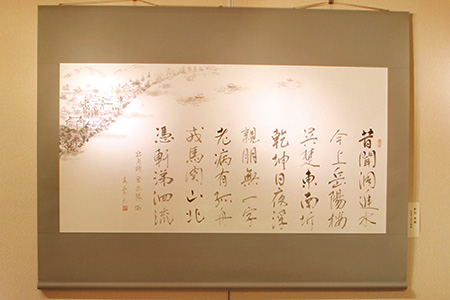 昔聞洞庭水
今上岳陽楼
呉楚東南坼
乾坤日夜浮
親朋無一字
老病有孤舟
戎馬関山北
憑軒涕泗流